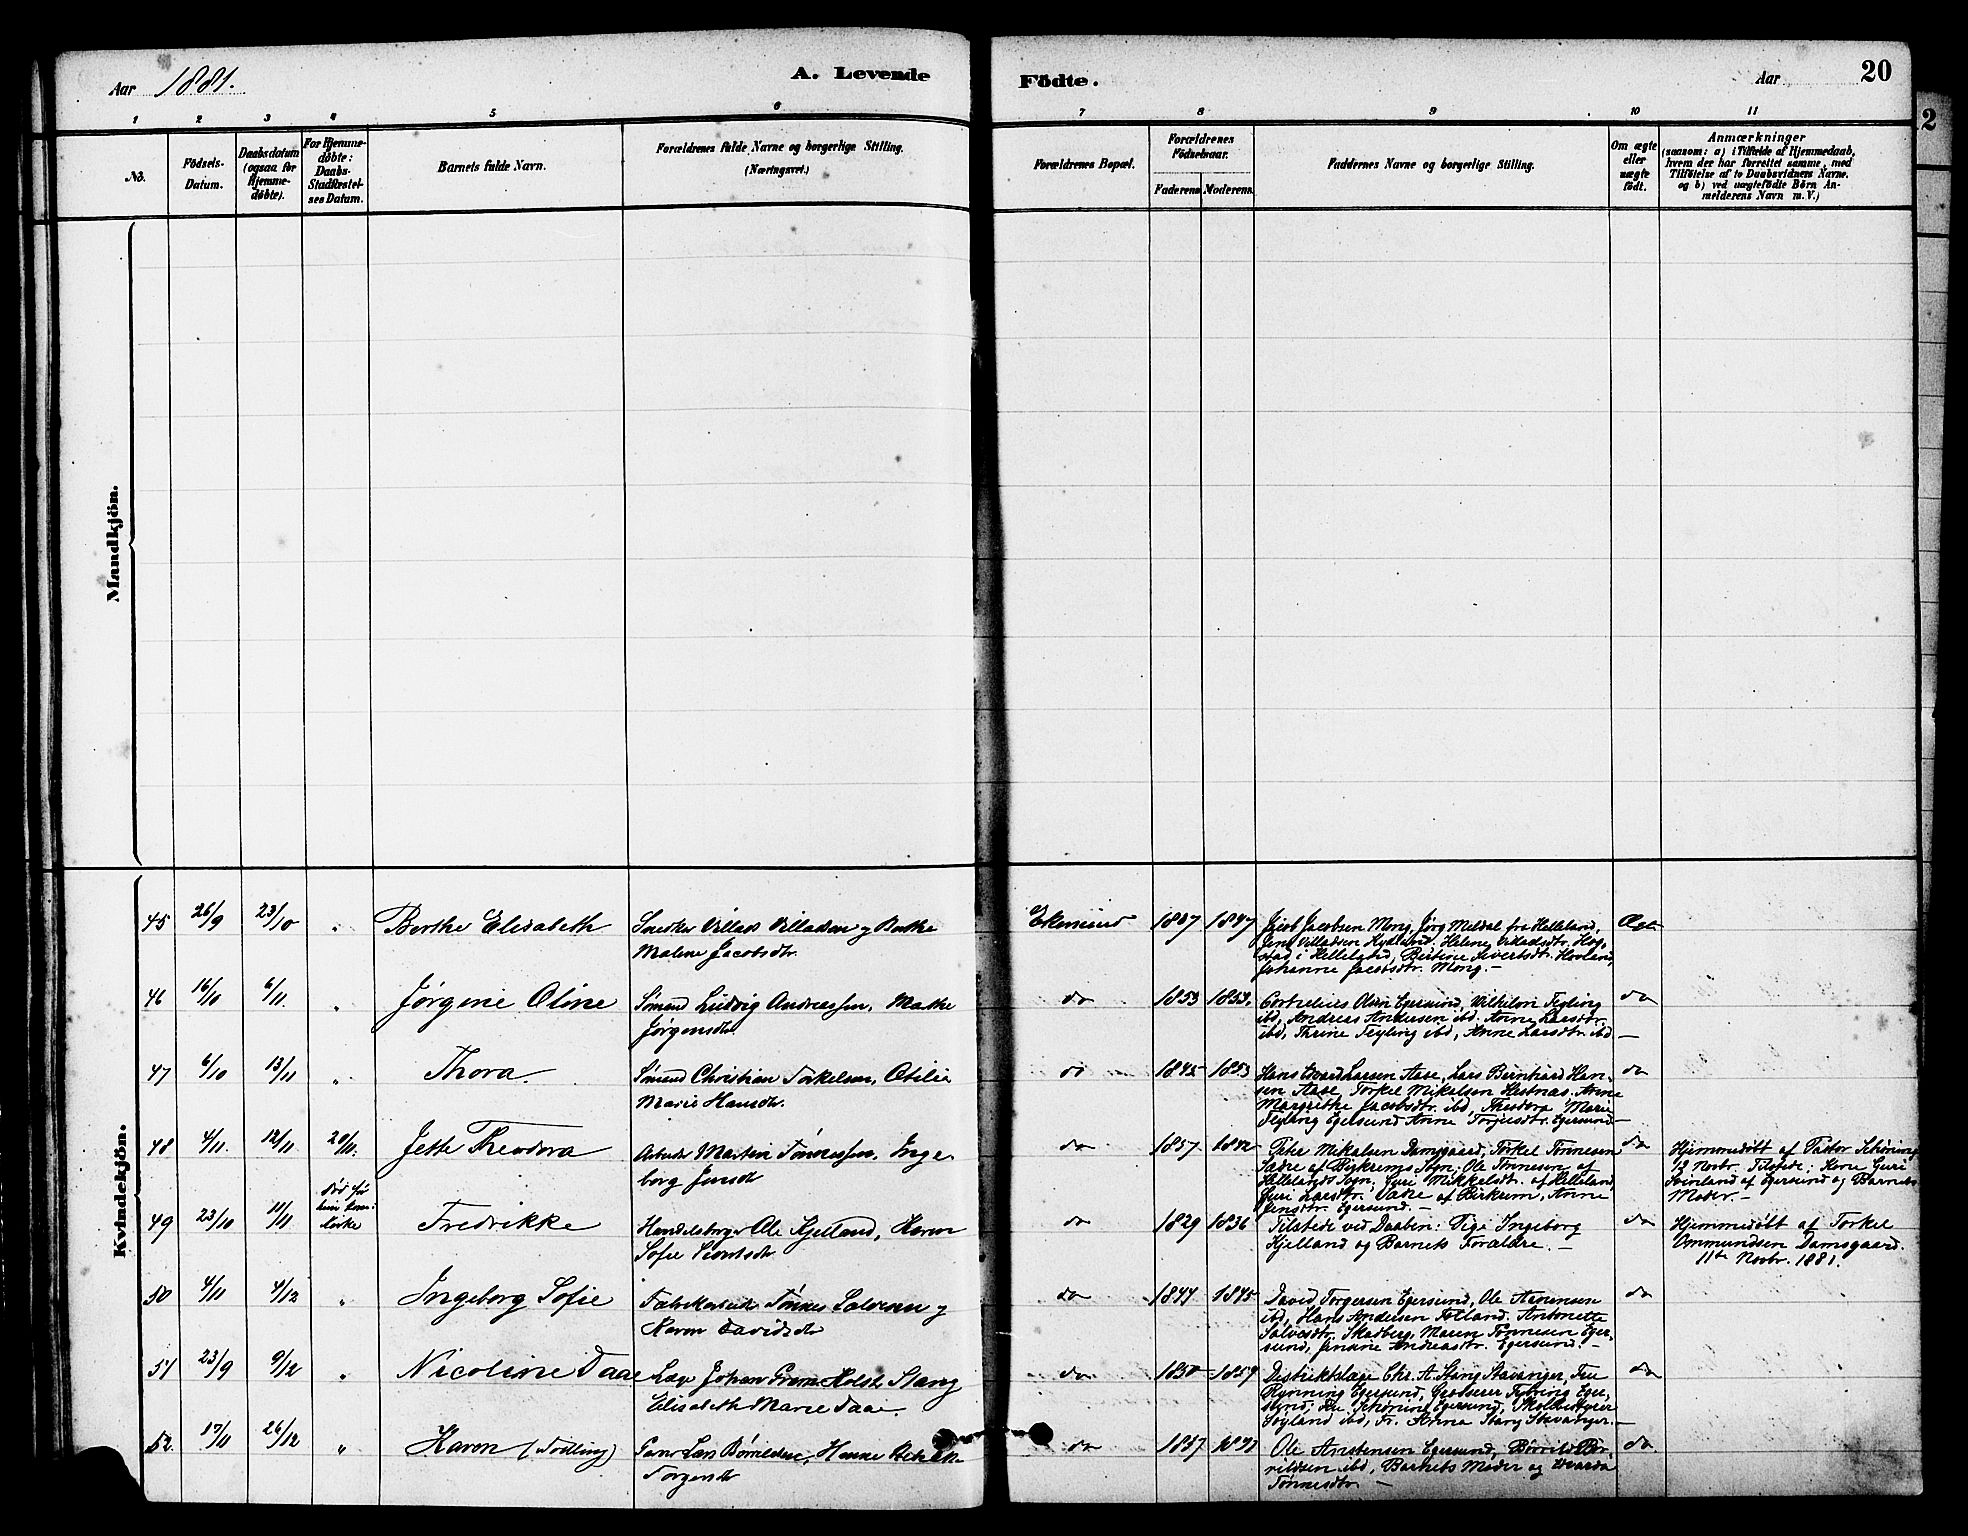 Aar 1881.
A. Levende
Födte.
Aar
20
1 2 3 4 5 6 7 8 9 10 11
No.
Födsels-
Datum.
Daabsdatum
(ogsaa for
Hjemme-
døbte).
For Hjemme-
døbte:
Daabs-
Stadfæstel-
ses Datum.
Barnets fulde Navn.
Forældrenes fulde Navne og borgerlige Stilling.
(Næringsvei.)
Forældrenes Bopæl.
Forældrenes
Födselsaar.
Faderens. Moderens.
Faddernes Navne og borgerlige Stilling.
Om ægte
eller
uægte
födt.
Anmærkninger
(saasom: a) i Tilfælde af Hjemmedaab,
hvem der har forrettet samme, med
Tilföielse af to Daabsvidners Navne.
og b) ved uægtefödte Börn An-
melderens Navn m.V.)
Mandkjön.
Kvindekjön.
45 26/9 23/10 " Berthe Elisabeth
Snedker Villads Villadsen og Berthe
Malene Jacobsdtr.
Ekersund 1847
Jacob Jacobsen Mong, Jörg Meldal fra Helleland,
Jens Villadsen Kydland. Helene Villadsdtr. Hog-
stad i Helleland, Bertine Sivertsdtr. Hovland,
Johanne Jacobsdtr. Mong. —
46 16/10 6/11 " Jørgine Oline
Sömand Ludvig Andreassen, Marthe
Jørgensdtr
do 1853 1853.
Cornelius Olsen Egersund, Vilhelm Feyling
ibd, Andreas Andersen ibd. Anne Larsdtr.
ibd, Thrine Feyling ibd, Anne Larsdtr. ibd —
do
47 6/10 13/11 " Thora.
Sömand Christian Torkelsen, Otilie
Marie Hansdtr.
do 1845 1853
Hans Larsen Aase, Lars Bernhard Han-
sen Aase, Torkel Mikalsen Hestnæs. Anne
Margrethe Jacobsdtr. ibd, Theodora Marie
Feyling Egersund Anne Torjusdtr. Egersund —
do
48 4/11 12/11 20/11 Jette Theodora
Arbeider Martin Tönnessen, Inge-
borg Jensdtr
do 1857 1842
Peter Mikalsen Damsgaard, Torkel Tönnesen
Lædre af Bjerkrems Sogn; Ole Tönnesen af
Hellelands Sogn, Guri Mikkelsdtr. af Helleland
Guri Larsdtr. af Birkrem, Anne
Jensdtr. Egersund. —
do
Hjemmedöbt af Pastor Schöning
12 Novbr. Tilstede: Kone Guri
Svinland af Egersund og Barnets
Moder. —
49 23/10 11/11
Död før
Kirke
Fredrikke
Handelsborger Ole Kjelland, Karen
Sofie
do 1829 1836
Tilstede ved Daaben: Pige Ingeborg
Kjelland og Barnets Forældre. —
do
Hjemmedöbt af Torkel
Ommundsen Damsgaard.
11te Novbr. 1881.
50 4/11 4/12 " Ingeborg Sofie
Fabrikarbeider Tönnes Salvesen og
Karen Davidsdtr
do 1844 1845
David Torgersen Egersund, Ole Asmunsen
ibd, Hans Andersen Fotland. Antonette
Salvesdtr. Skadberg, Maren Tönnesen Eger-
sund, Jensine Andreasdtr. Egersund. —
do
51 23/9 9/12 " Nicoline Daae
Læge Johan Holst Stang
Elisabeth Marie Daae.
do 1850 1859
Distriktslæge Chr. A. Stang Stavanger, Fru
Rynning Egersund, Grosserer Feyling Eger-
sund; Fru Schöning Egersund, Skolebestyrer
Söyland ibd, Fr. Anna Stang Stavanger. —
do
52. 17/11 26/12 " Karen (Tvilling)
Lars Börildsen, Hanne
Torgersdtr
do 1837
Ole Anstensen Egersund, Börild Bö-
rildsen ibd, Barnets Moder og
Tönnesdtr. —
do